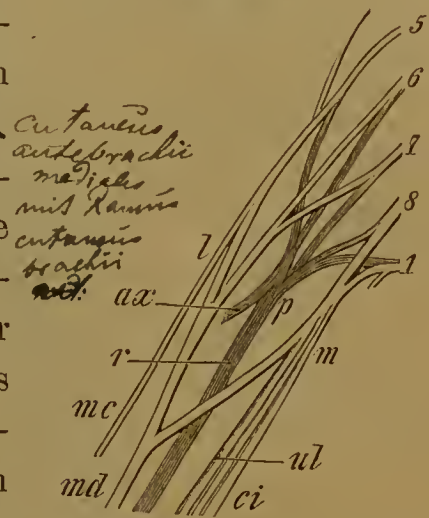 cutaneus
antebrachii
medialis
mit Ramus
cutaneus
brachii
med.
5
6
7
8
1
l
ax
p
r
m
mc
ul
md
ci
n
e
r
s
n